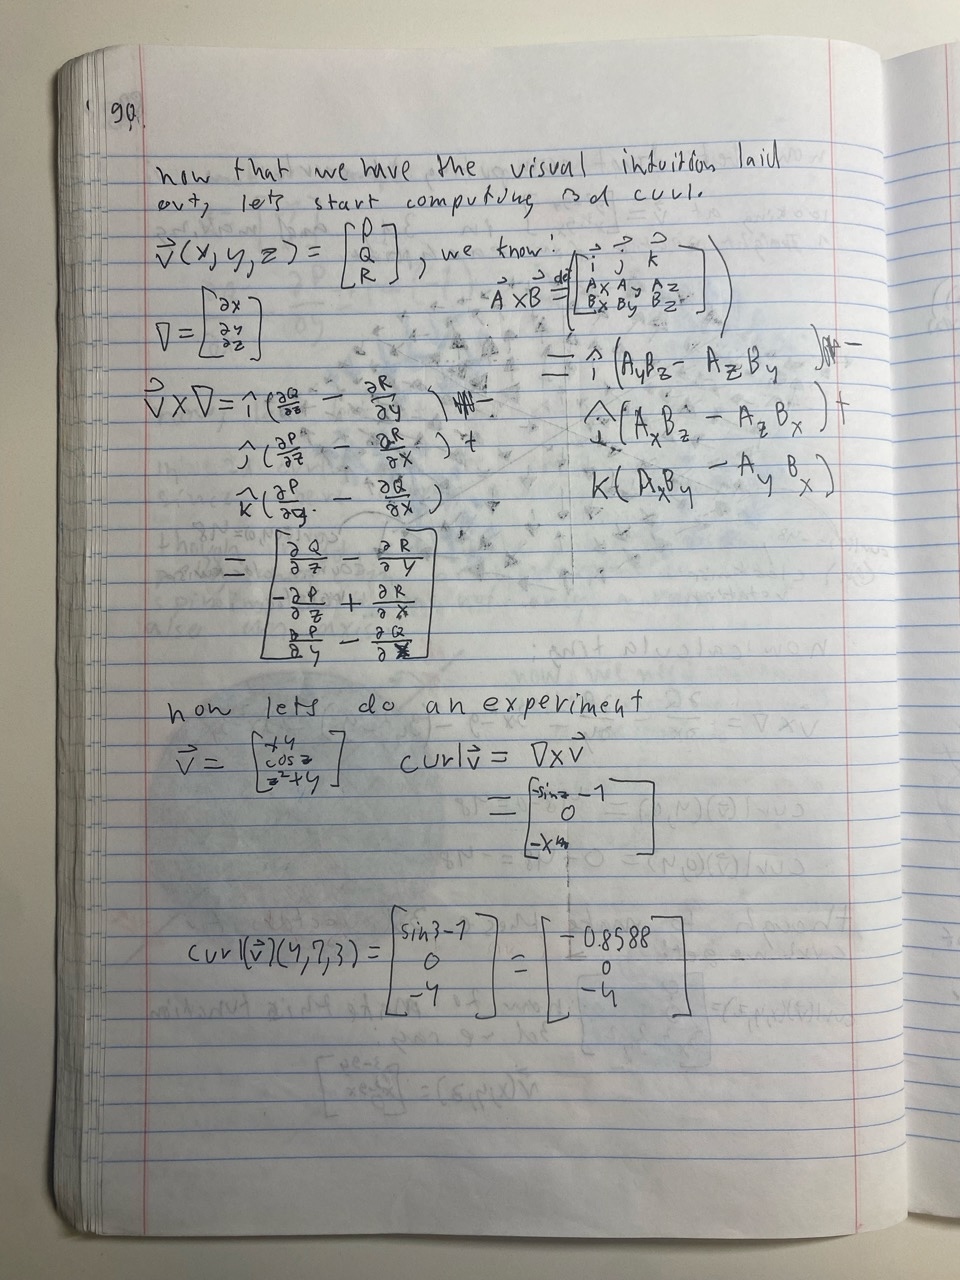 90.
now that we have the visual intuition laid
out, lets start computing 3d curl.
v⃗(x,y,z) = [P Q R], we know:
A⃗ × B⃗ = det([i⃗ j⃗ k⃗ Ax Ay Az Bx By Bz])
∇ = [∂x ∂y ∂z]
= î(AyBz - AzBy) -
ĵ(AxBz - AzBx) +
k(AxBy - AyBx)
v⃗ × ∇ = î(∂Q/∂z - ∂R/∂y) -
ĵ(∂P/∂z - ∂R/∂x) +
k̂(∂P/∂y - ∂Q/∂x)
= [∂Q/∂z - ∂R/∂y
-∂P/∂z + ∂R/∂x
∂P/∂y - ∂Q/∂x]
now lets do an experiment
v⃗ = [xy cosz z²+y] curl v⃗ = ∇×v⃗
= [-sinz-1 0 -x]
curl(v⃗)(4,7,3) = [sin3-1 0 -4] = [-0.8588 0 -4]